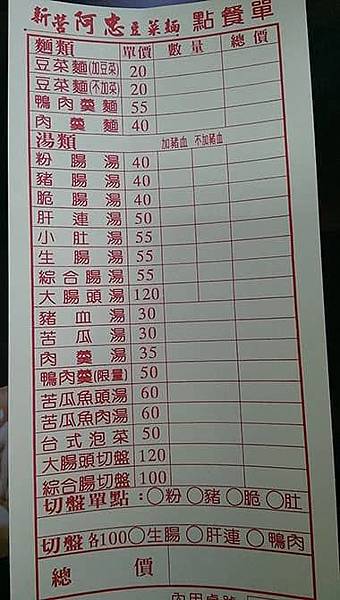 新營阿忠豆菜麵 點餐單
麵類 單價 數量 總價
豆菜麵(加豆菜) 20
豆菜麵(不加菜) 20
鴨肉羹麵 55
肉羹麵 40
湯類 加豬血 不加豬血
粉腸湯 40
豬腸湯 40
脆腸湯 40
肝連湯 50
小肚湯 55
生腸湯 55
綜合腸湯 55
大腸頭湯 120
豬血湯 30
苦瓜湯 30
肉羹湯 35
鴨肉羹(限量) 50
苦瓜魚頭湯 60
苦瓜魚肉湯 60
台式泡菜 50
大腸頭切盤 120
綜合腸切盤 100
切盤單點:○粉○豬○脆○肚
切盤各100○生腸○肝連○鴨肉
總價
內用桌號